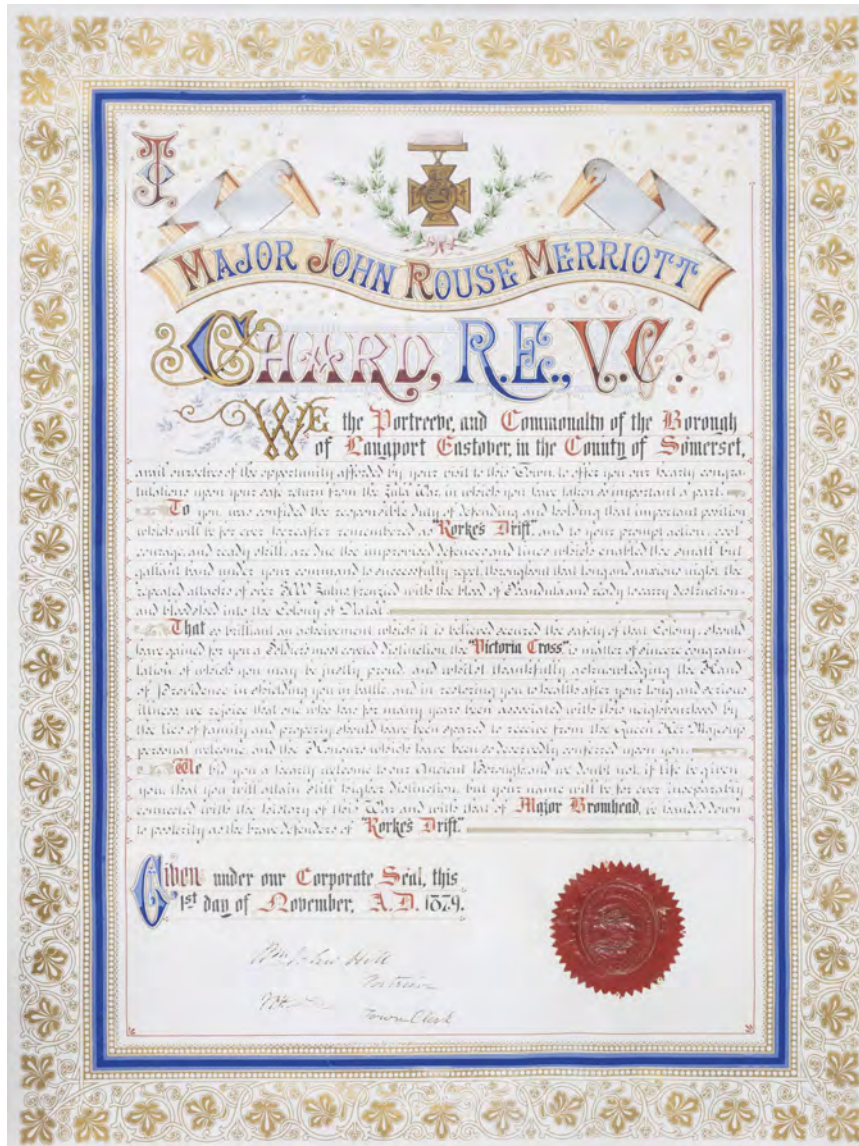 To
MAJOR JOHN ROUSE MERRIOTT
CHARD, R.E., V.C.
WE the Portreeve, and Commonalty of the Borough
of Langport Eastover, in the County of Somerset,
avail ourselves of the opportunity afforded by your visit to this Town, to offer you our hearty congra-
tulations upon your safe return from the Zulu War in which you have taken so important a part.
To you was confided the responsible duty of defending and holding that important position
which will be for ever hereafter remembered as "Rorke's Drift" and to your prompt action, cool
courage, and ready skill, are due the improvised defences and lines which enabled the small but
gallant band under your command to successfully repel, throughout that long and anxious night, the
repeated attacks of over Zulus frenzied with the blood of Isandula and ready to carry destruction
and bloodshed into the Colony of Natal.
That so brilliant an achievement which it is believed secured the safety of that Colony, should
have gained for you a Soldiers most coveted distinction, the "Victoria Cross" is matter of sincere congratu-
lation, of which you may be justly proud, and whilst thankfully acknowledging the Hand
of Providence in shielding you in battle, and in restoring you to health after your long and serious
illness, we rejoice that one who has for many years been associated with this neighbourhood by
the ties of family and property should have been spared to receive from the Queen Her Majestys
personal welcome, and the Honours which have been so deservedly conferred upon you.
We bid you a hearty welcome to our Ancient Borough and we doubt not, if life be given
you, that you will attain still higher distinction, but your name will be for ever inseparably
connected with the history of this War and with that of Major Bromhead, be handed down
to posterity as the brave defenders of "Rorke's Drift."
Given under our Corporate Seal, this
1st day of November, A.D. 1879.
Hill
Portreeve
Town Clerk